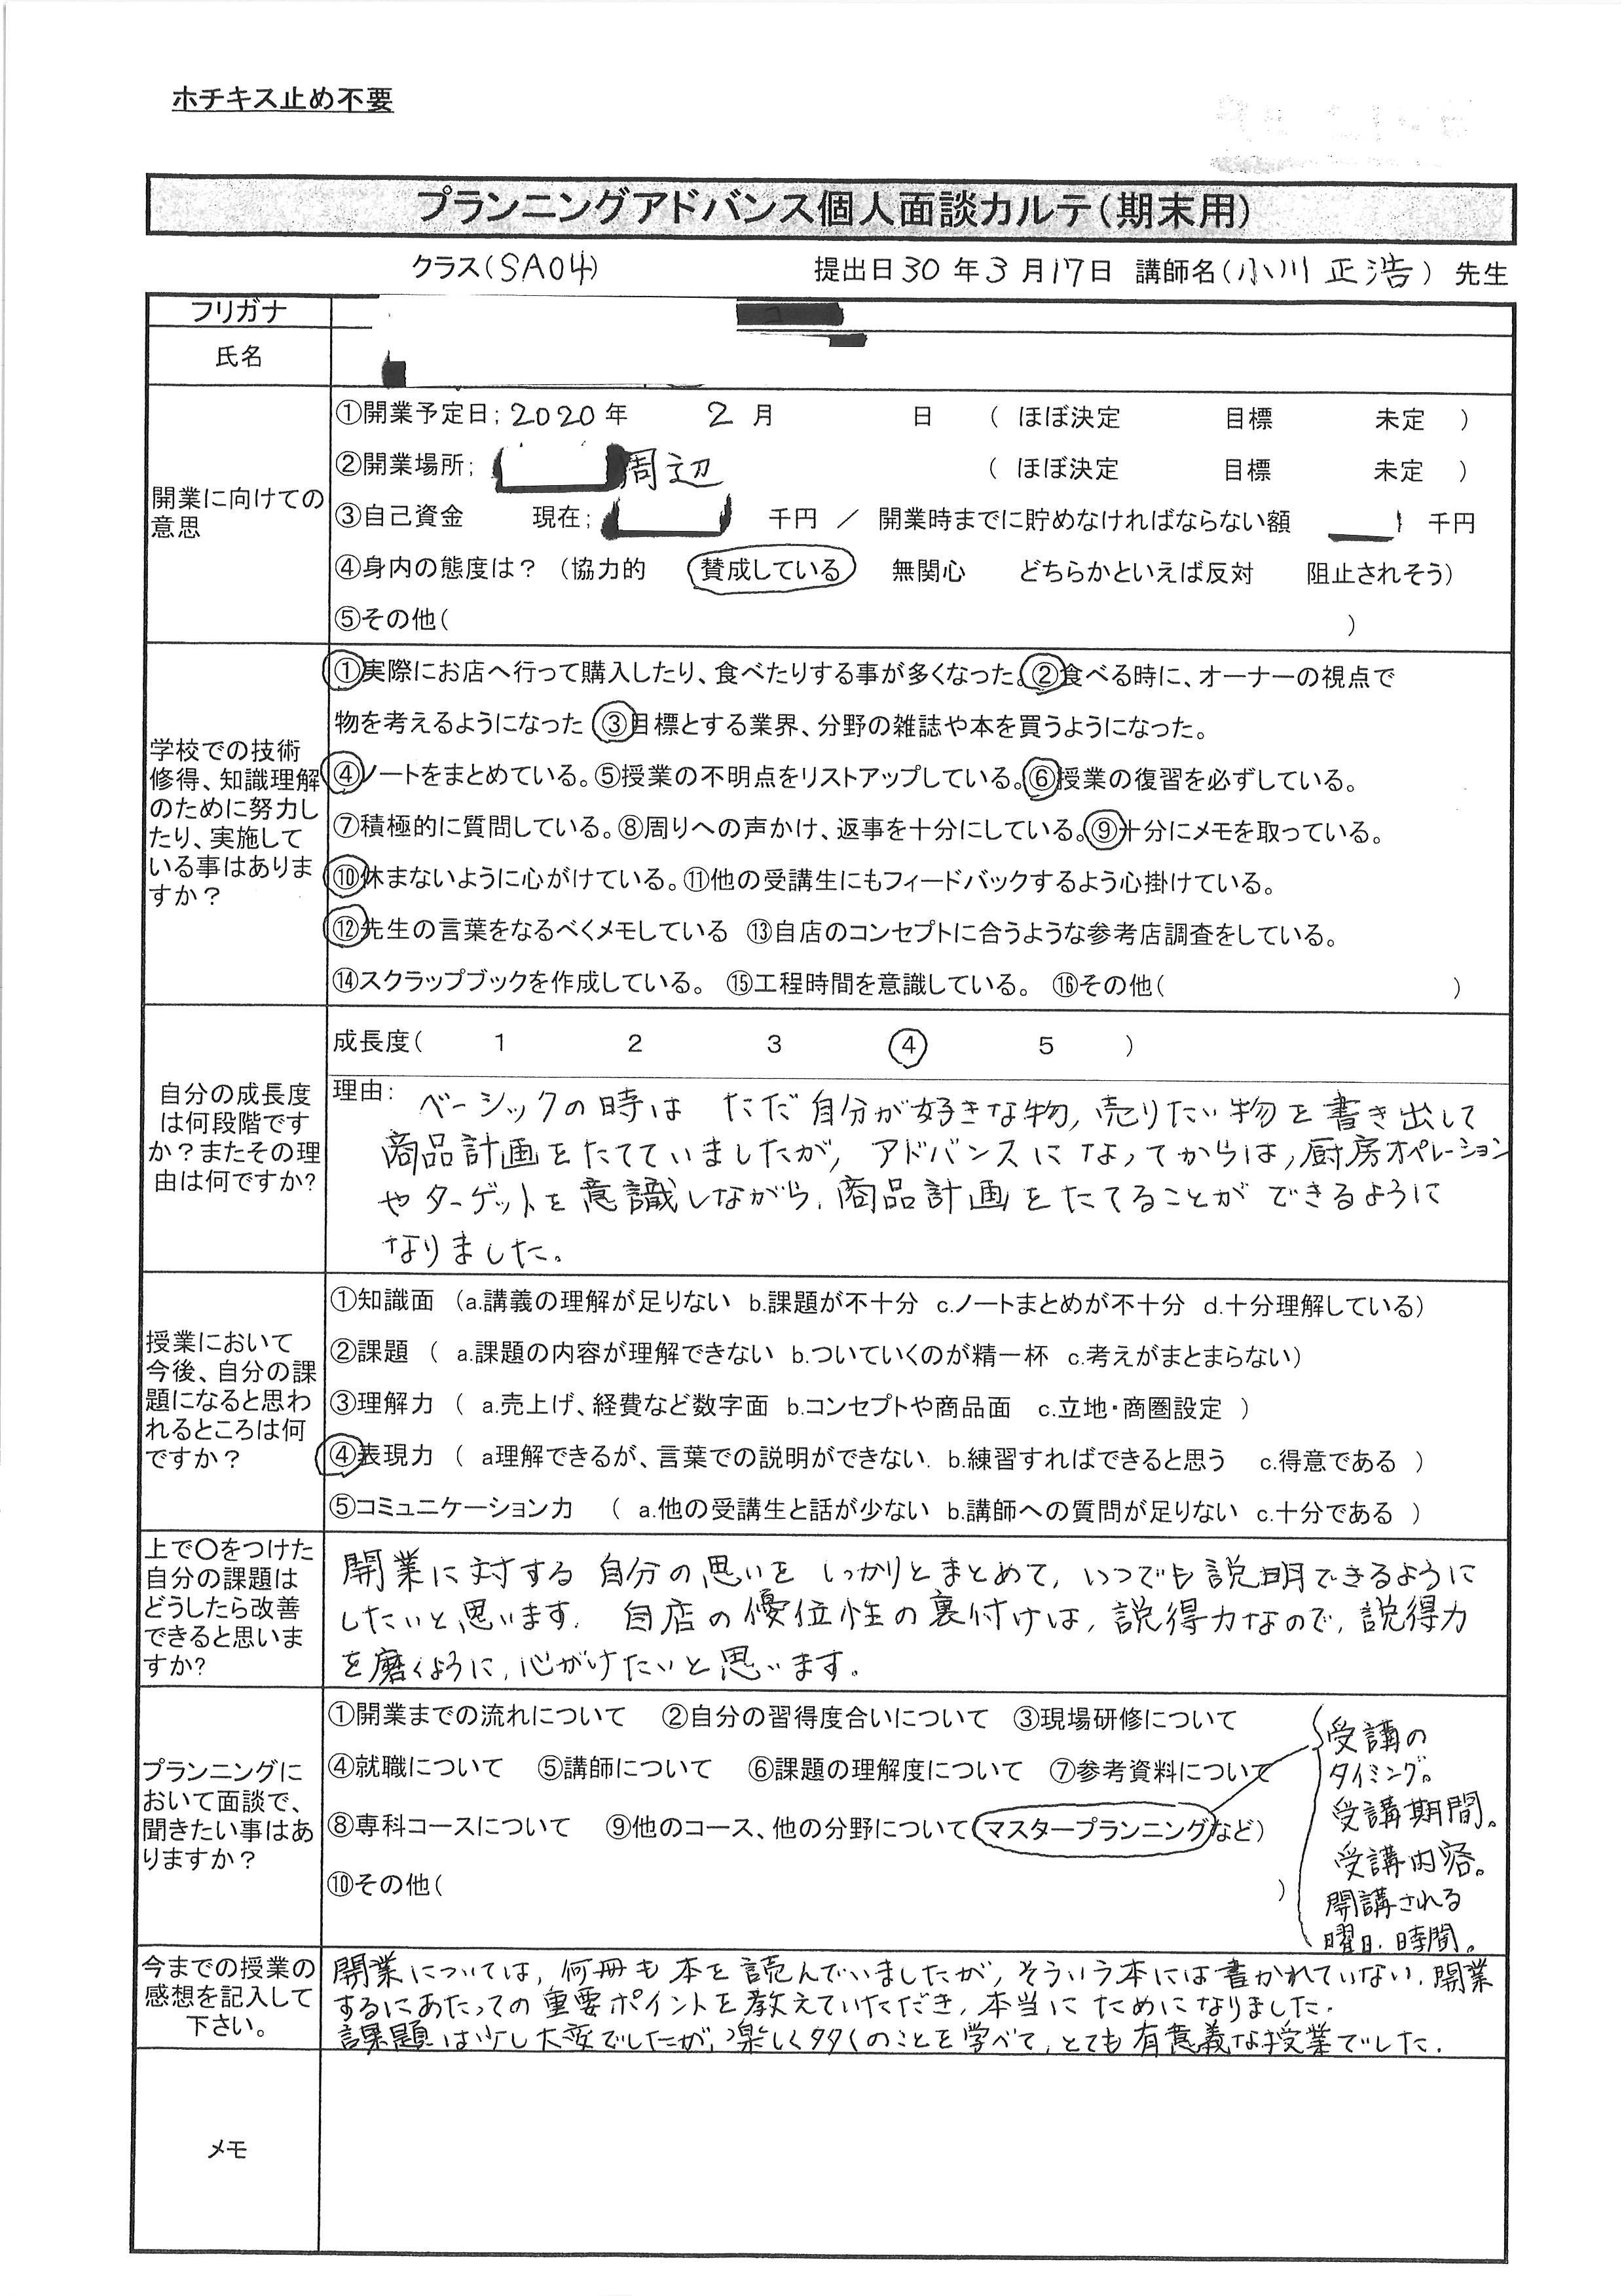 ホチキス止め不要
プランニングアドバンス個人面談カルテ(期末用)
クラス(SA04) 提出日30年3月17日 講師名(小川 正浩) 先生
フリガナ
氏名
開業に向けての
意思
①開業予定日;2020年 2月 日 ( ほぼ決定 目標 未定 )
②開業場所; 周辺 ( ほぼ決定 目標 未定 )
③自己資金 現在; 千円 / 開業時までに貯めなければならない額 千円
④身内の態度は? (協力的 賛成している 無関心 どちらかといえば反対 阻止されそう)
⑤その他( )
学校での技術
修得、知識理解
のために努力し
たり、実施して
いる事はありま
すか?
①実際にお店へ行って購入したり、食べたりする事が多くなった。②食べる時に、オーナーの視点で
物を考えるようになった ③目標とする業界、分野の雑誌や本を買うようになった。
④ノートをまとめている。⑤授業の不明点をリストアップしている。⑥授業の復習を必ずしている。
⑦積極的に質問している。⑧周りへの声かけ、返事を十分にしている。⑨十分にメモを取っている。
⑩休まないように心がけている。⑪他の受講生にもフィードバックするよう心掛けている。
⑫先生の言葉をなるべくメモしている ⑬自店のコンセプトに合うような参考店調査をしている。
⑭スクラップブックを作成している。 ⑮工程時間を意識している。 ⑯その他( )
自分の成長度
は何段階です
か?またその理
由は何ですか?
成長度( 1 2 3 4 5 )
理由: ベーシックの時は ただ自分が好きな物,売りたい物を書き出して
商品計画をたてていましたが, アドバンスになってからは,厨房オペレーション
やターゲットを意識しながら,商品計画をたてることができるように
なりました。
授業において
今後、自分の課
題になると思わ
れるところは何
ですか?
①知識面 (a.講義の理解が足りない b.課題が不十分 c.ノートまとめが不十分 d.十分理解している)
②課題 ( a.課題の内容が理解できない b.ついていくのが精一杯 c.考えがまとまらない)
③理解力 ( a.売上げ、経費など数字面 b.コンセプトや商品面 c.立地・商圏設定 )
④表現力 ( a理解できるが、言葉での説明ができない. b.練習すればできると思う c.得意である )
⑤コミュニケーション力 ( a.他の受講生と話が少ない b.講師への質問が足りない c.十分である )
上で〇をつけた
自分の課題は
どうしたら改善
できると思いま
すか?
開業に対する 自分の思いを しっかりとまとめて, いつでも説明できるように
したいと思います. 自店の優位性の裏付けは,説得力なので,説得力
を磨くように,心がけたいと思います。
プランニングに
おいて面談で、
聞きたい事はあ
りますか?
①開業までの流れについて ②自分の習得度合いについて ③現場研修について
④就職について ⑤講師について ⑥課題の理解度について ⑦参考資料について
⑧専科コースについて ⑨他のコース、他の分野について(マスタープランニングなど)
⑩その他( )
受講の
タイミング。
受講期間。
受講内容。
開講される
曜日.時間。
今までの授業の
感想を記入して
下さい。
開業については, 何冊も本を読んでいましたが, そういう本には書かれていない, 開業
するにあたっての重要ポイントを教えていただき, 本当に ためになりました.
課題は少し大変でしたが, 楽しく多くのことを学べて, とても有意義な授業でした.
メモ